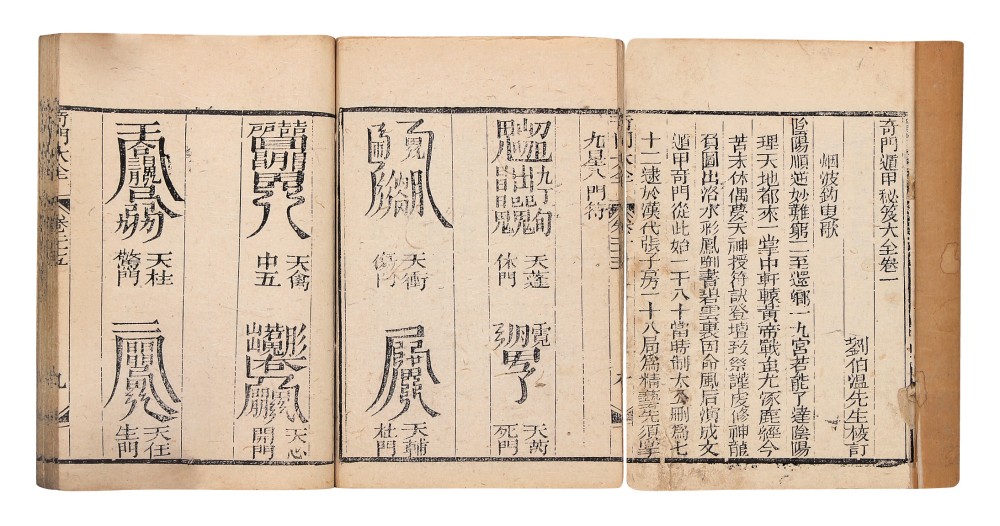 奇門遁甲秘笈大全卷一
劉伯温先生校訂
烟波釣叟歌
陰陽順逆妙難窮二至還鄉一九宮若能了達陰陽
理天地都來一掌中軒轅黃帝戰蚩尤涿鹿經今
苦未休偶夢天神授符訣登壇致祭謹虔修神龍
負圖出洛水彩鳳啣書碧雲裏因命風后演成文
遁甲竒門從此始一千八十當時制太公刪爲七
十二逮於漢代張子房一十八局爲精藝先須掌
九星八門符
天蓬
休門
天芮
死門
天衝
傷門
天輔
杜門
天禽
中五
天心
開門
天柱
驚門
天任
生門
九